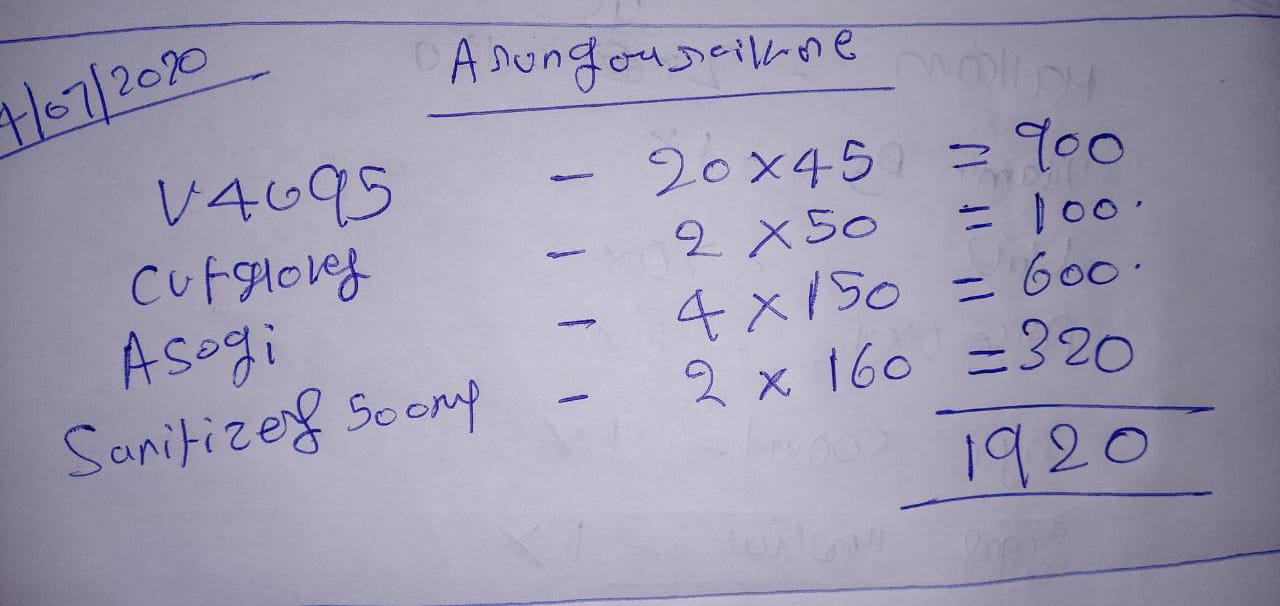 4/07/2020
V4095 - 20 x 45 = 900
Cutgloves - 2 x 50 = 100.
Asogi - 4 x 150 = 600.
Sanitizer 500ml - 2 x 160 = 320
1920